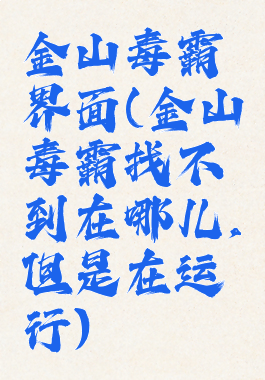 金山毒霸
界面(金山
毒霸找不
到在哪儿,
但是在运
行)